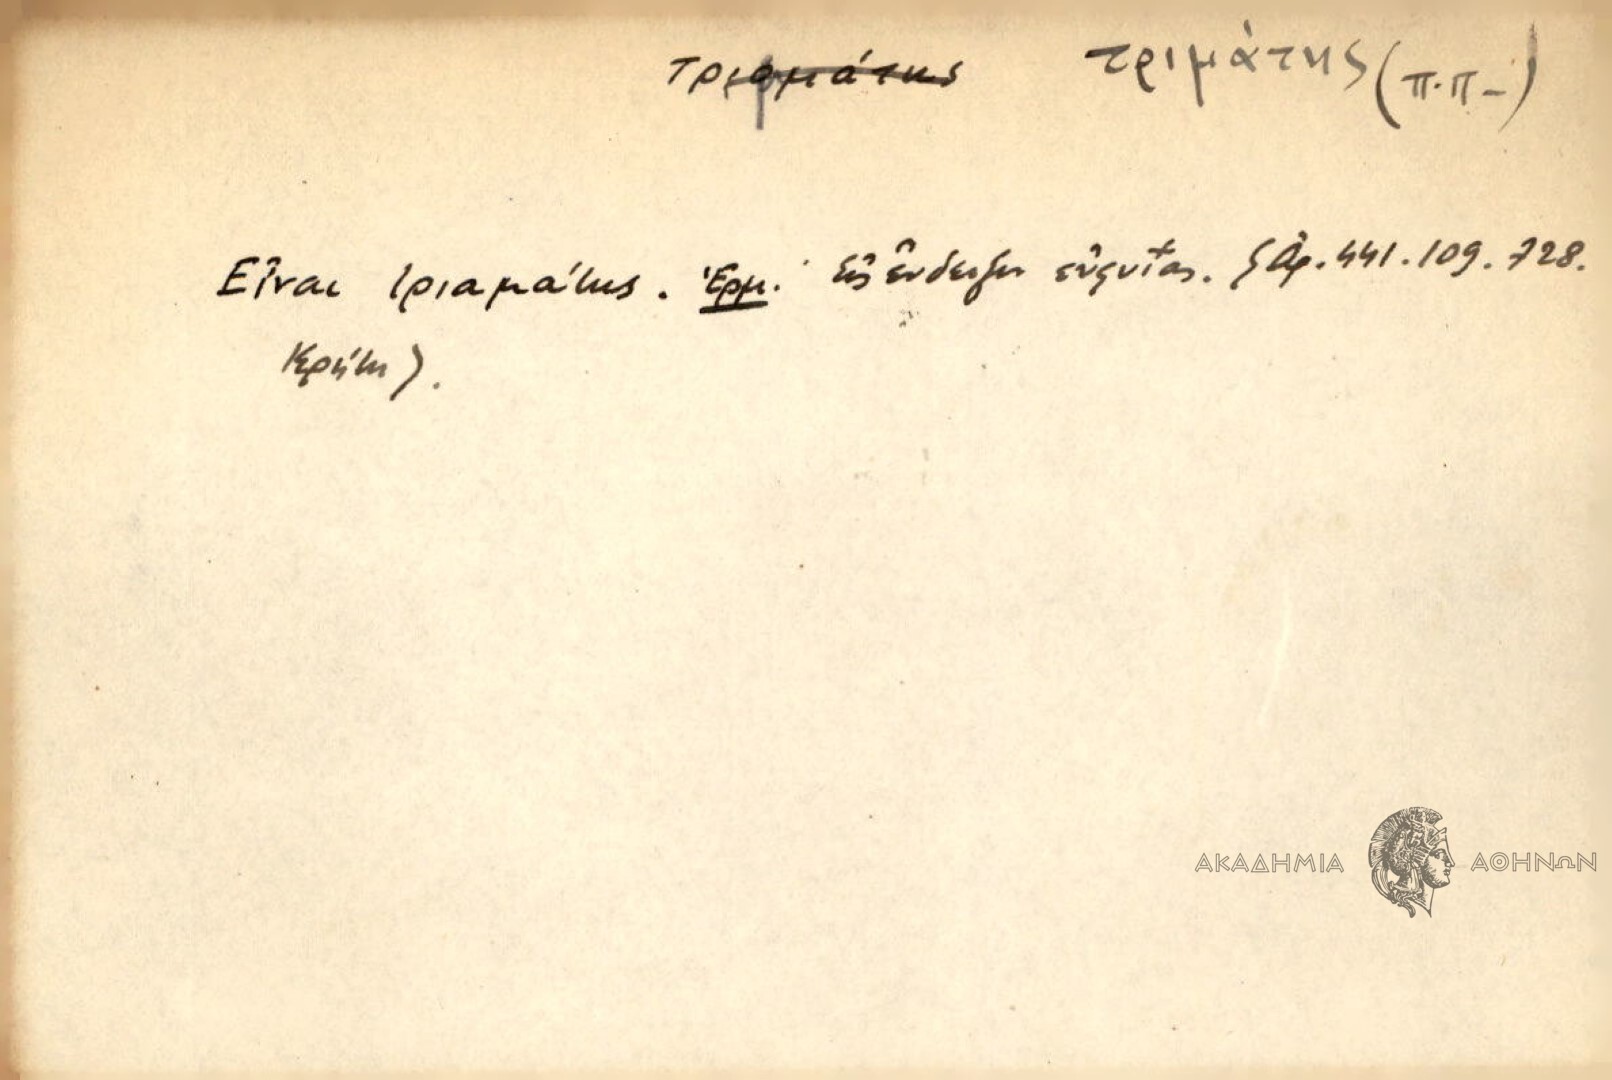 τριαμάτης τριμάτης (π.π-)
Εἶναι τριαμάτης. Ἑρμ. εἰς ἔνδειξιν εὐφυΐας. (Ἀρ. 441. 109. 728.
Κρήτη).
ΑΚΑΔΗΜΙΑ ΑΘΗΝΩΝ